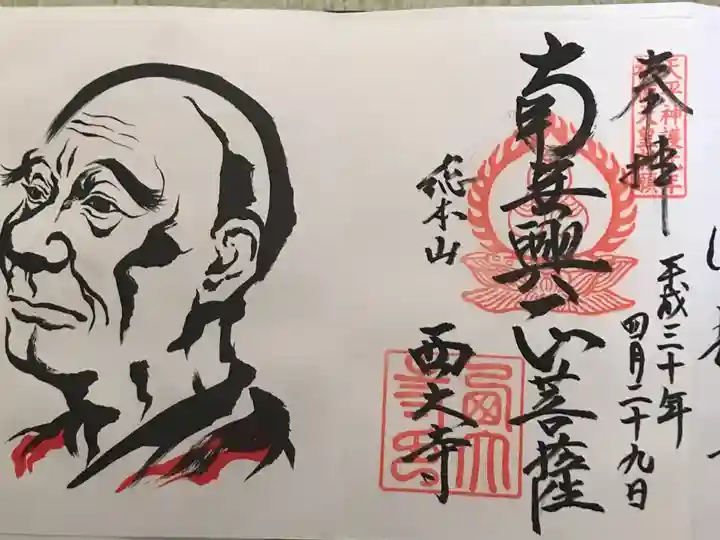 奉拝
平成三十年
四月二十九日
南無興正菩薩
総本山
西大寺